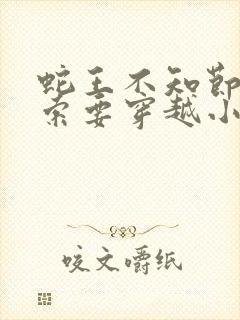 蛇王不知节
索要穿越小
咬文嚼纸